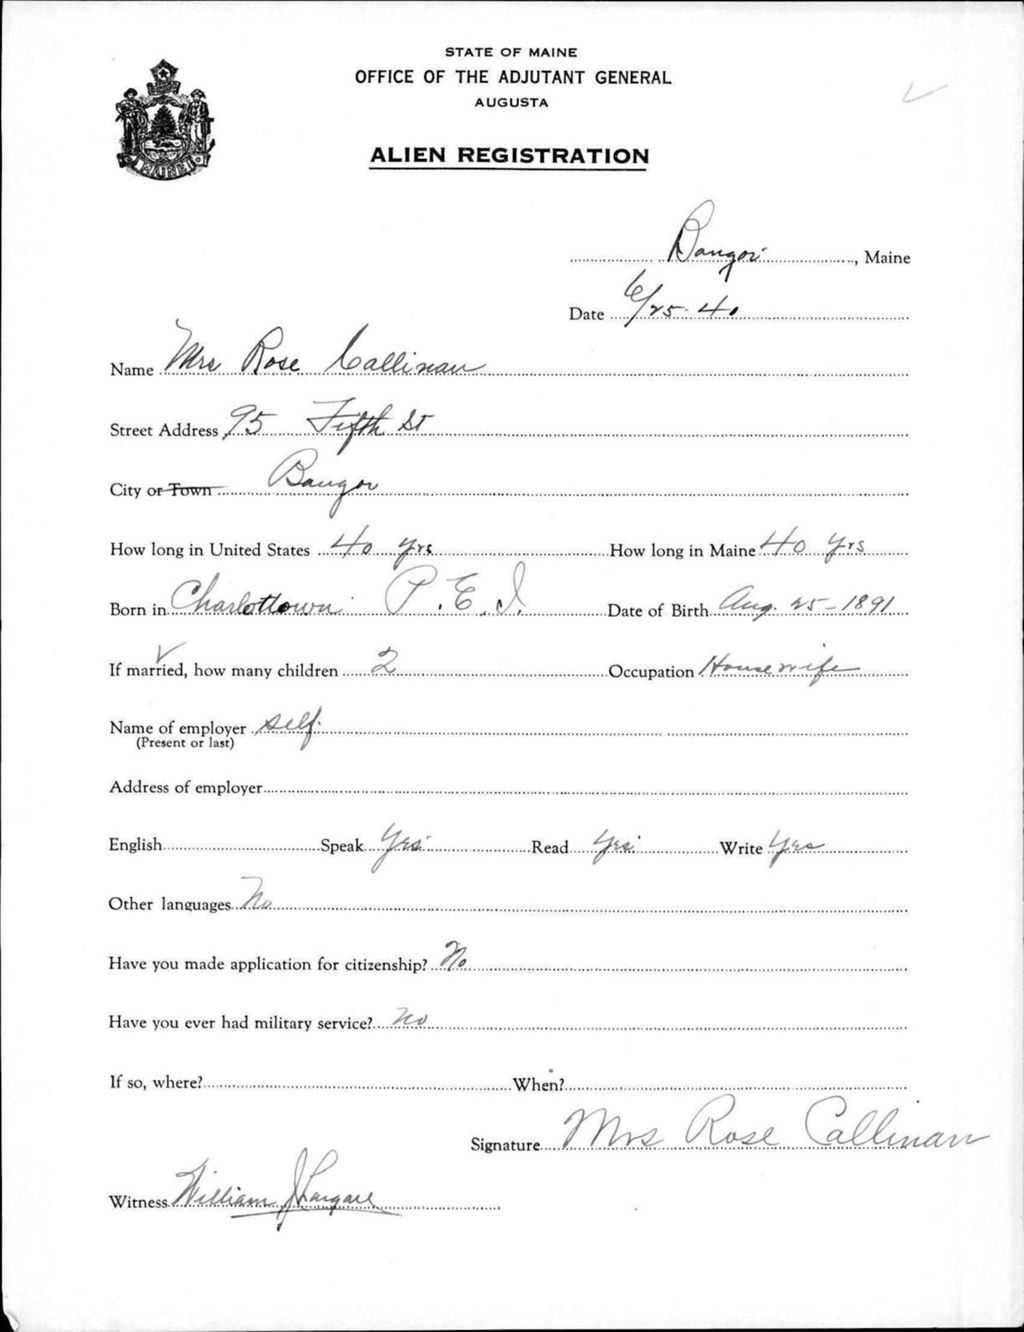 STATE OF MAINE
OFFICE OF THE ADJUTANT GENERAL
AUGUSTA
ALIEN REGISTRATION
MAINE
Bangor, Maine
Date 6/25-40
Name Mrs Rose Callinan
Street Address 95 Fifth St
City or Town Bangor
How long in United States 40 yrs How long in Maine 40 yrs
Born in Charlottown P.E.I. Date of Birth Aug. 25-1891
If married, how many children 2 Occupation Housewife
Name of employer self.
(Present or last)
Address of employer
English Speak Yes Read Yes Write Yes
Other languages No
Have you made application for citizenship? No
Have you ever had military service? No
If so, where? When?
Signature Mrs Rose Callinan
Witness William J